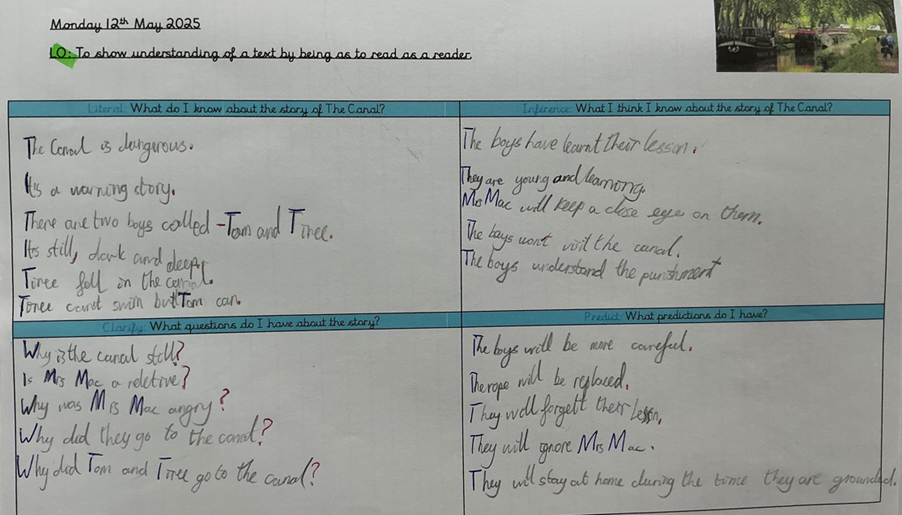 Monday 12th May 2025
LO: To show understanding of a text by being as to read as a reader
Literal: What do I know about the story of The Canal?
The Canal is dangurous.
Its a warning story.
There are two boys called - Tom and Tiree.
Its still, dark and deep!
Tiree fell in the canal.
Tiree cant swim but Tom can.
Inference: What I think I know about the story of The Canal?
The boys have learnt their lesson.
They are young and learning.
Mrs Mac will keep a close eye on them.
The boys wont visit the canal.
The boys understand the punishment
Clarify: What questions do I have about the story?
Why is the canal still?
Is Mrs Mac a reletive?
Why was Mrs Mac angry?
Why did they go to the canal?
Why did Tom and Tiree go to the canal?
Predict: What predictions do I have?
The boys will be more careful.
The rope will be replaced.
They will forgett their lesson.
They will ignore Mrs Mac.
They will stay at home during the time they are grounded.